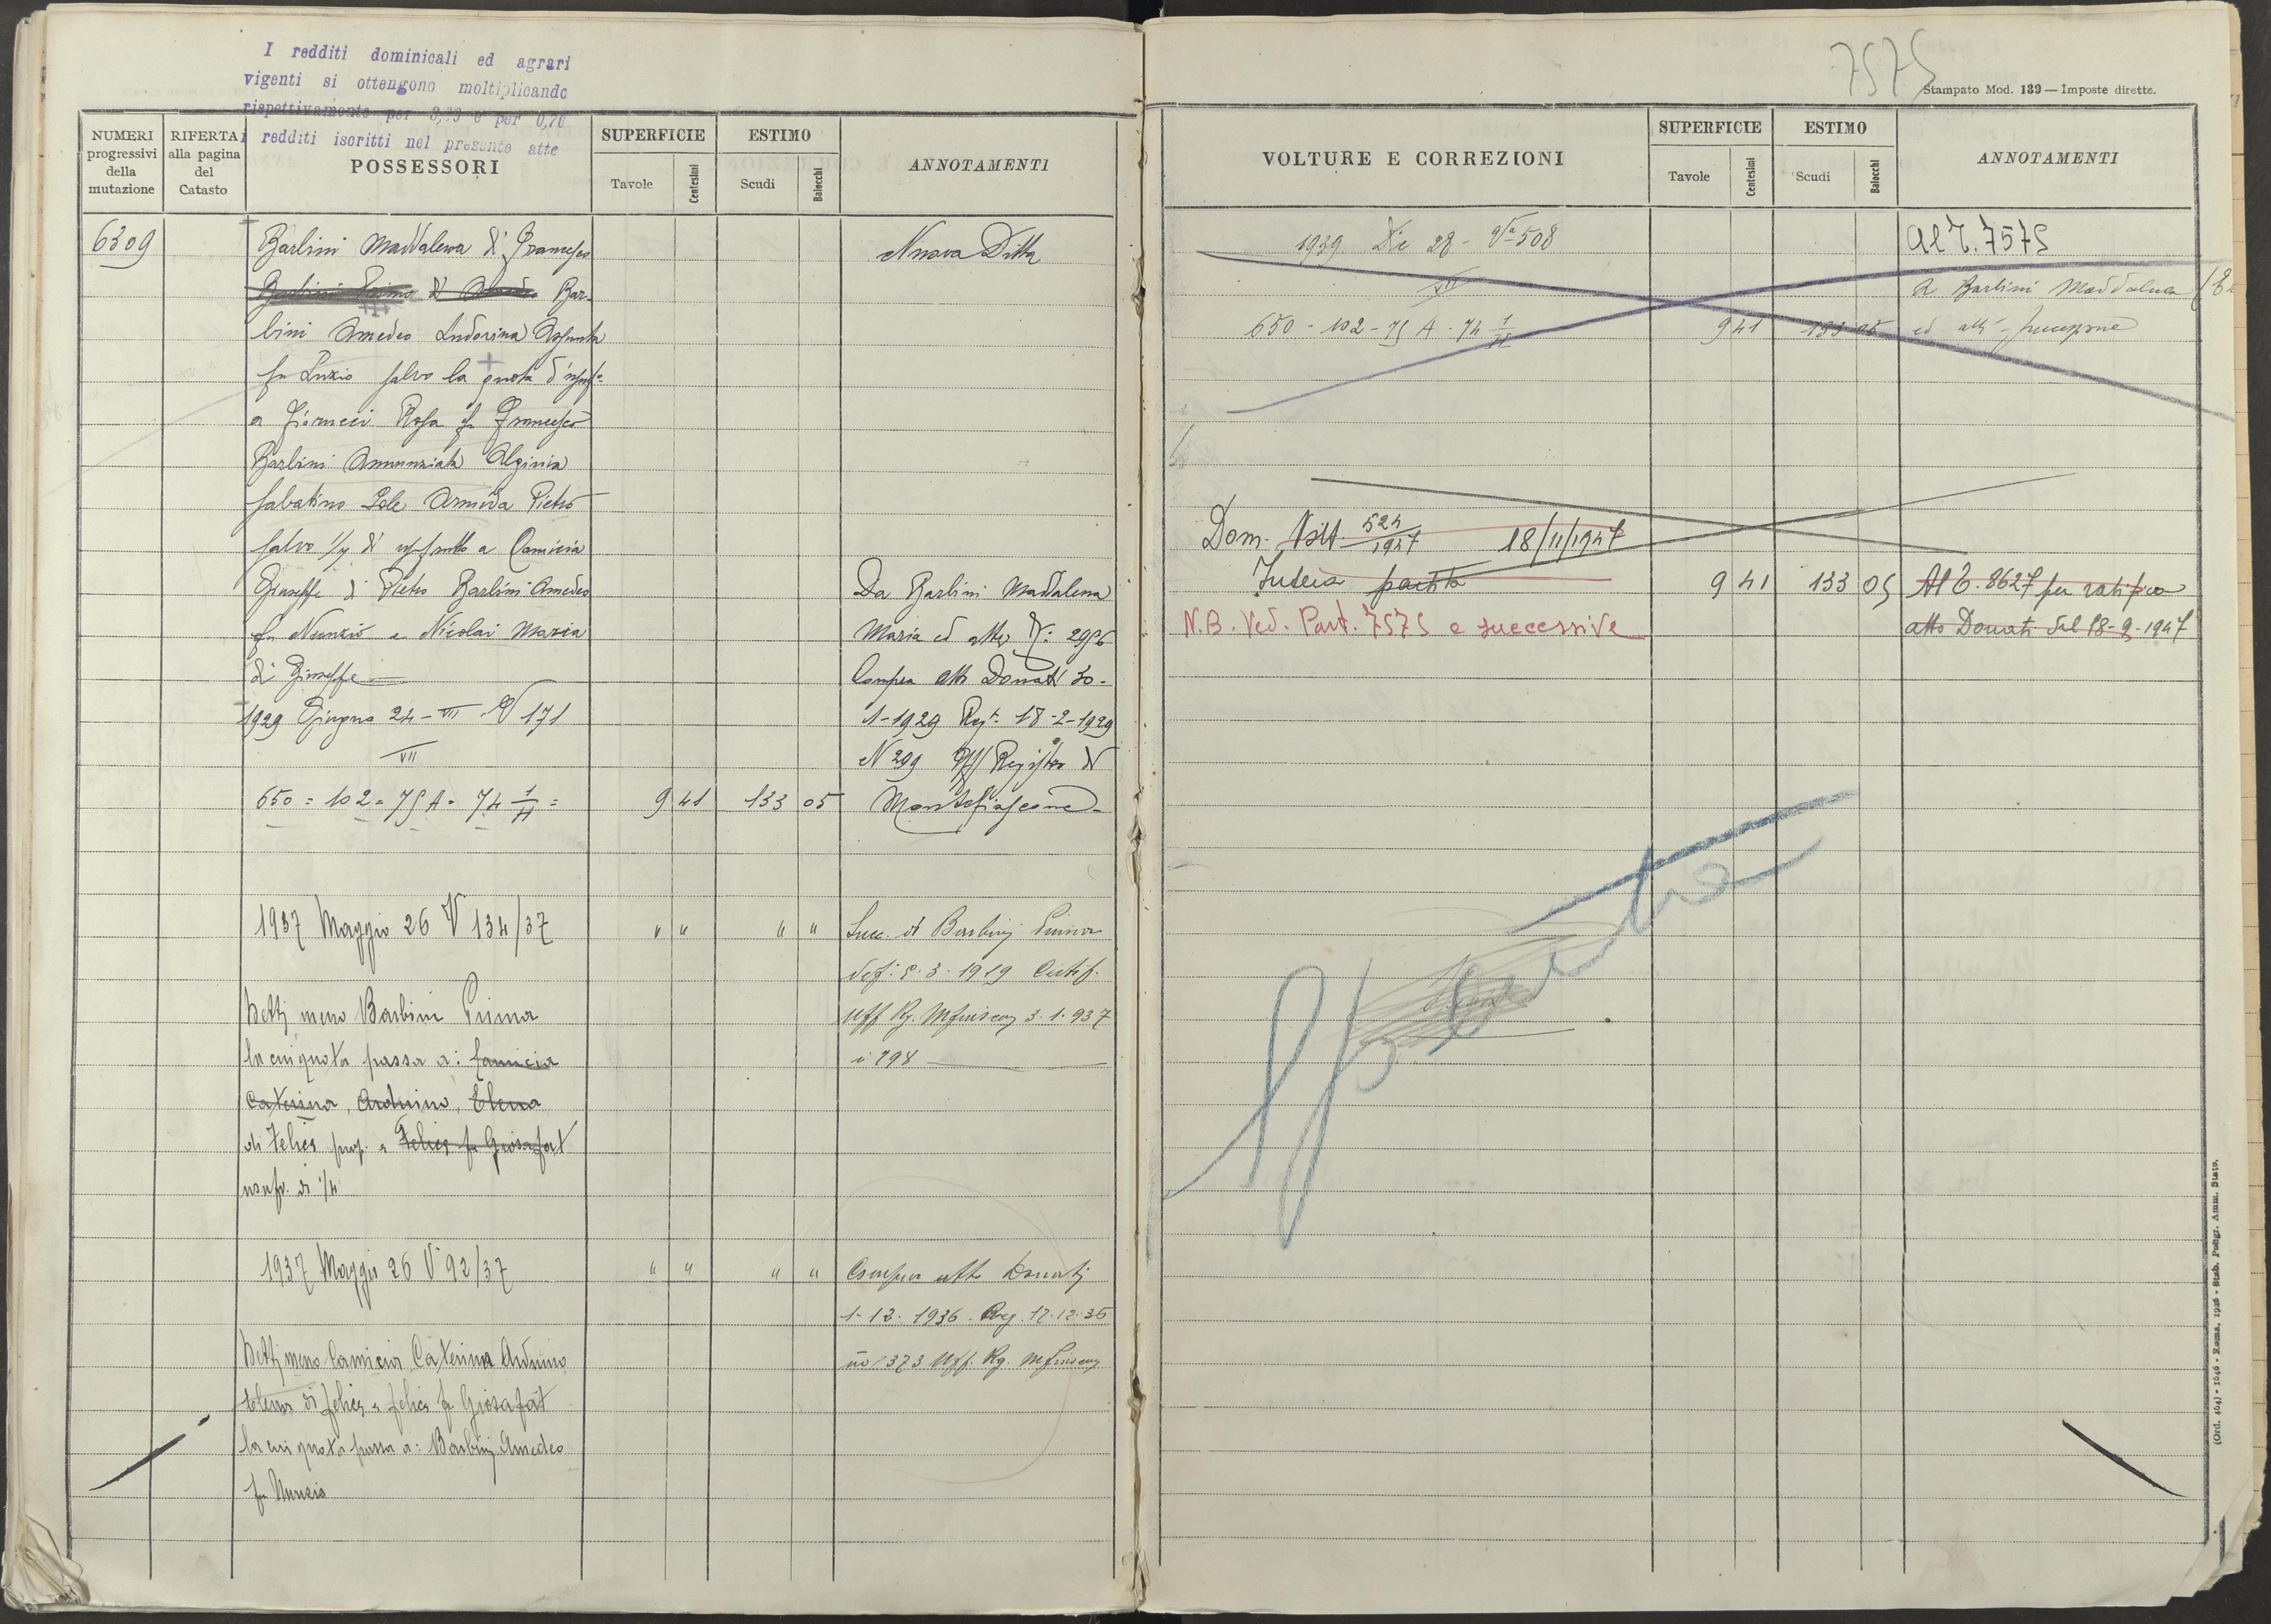 I redditi dominicali ed agrari
vigenti si ottengono moltiplicando
rispettivamente per 3,80 e per 0,70
i redditi iscritti nel presente atto
NUMERI progressivi della mutazione
RIFERTA alla pagina del Catasto
POSSESSORI
SUPERFICIE
Tavole
Centesimi
ESTIMO
Scudi
Baiocchi
ANNOTAMENTI
6309
Barbini Maddalena di Francesco
Nuova Ditta
Barbini Primo di Amedeo Bar-
bini Amedeo Ludovina Assunta
fu Nunzio salvo la quota d'usuf.
a Fiorucci Rosa fu Francesco
Barbini Annunziata Alginia
Sabatino Iole Armida Pietro
salvo 1/4 di usufrutto a Camicia
Giuseppe di Pietro Barbini Amedeo
fu Nunzio e Nicolai Maria
di Giuseppe
Da Barbini Maddalena
Maria ed altri N: 2956
Compra atto Donati 30-
1-1929 Reg. 18-2-1929
N 299 Uff Registro di
Montefiascone
1929 Giugno 24 - VII V 171
VII
650 = 102 = 75 A = 74 1/II =
9 41 133 05
1937 Maggio 26 V 134/37
" " " "
Succ. di Barbini Prima
def: 5.3.1919 Certif.
Uff Rg. Mfiascone 3.1.937
n 298
Detti meno Barbini Prima
la cui quota passa a: Camicia
Caterina, Arduino, Elena
di Felice prop. e Felice fu Giosafat
usufr. di 1/4
1937 Maggio 26 V 92/37
" " " "
Compra atto Donati
1-12-1936. Reg. 17.12.36
no 373 Uff. Rg. Mfiascone
Detti meno Camicia Caterina Arduino
Elena di Felice e Felice fu Giosafat
la cui quota passa a: Barbini Amedeo
fu Nunzio
7575
Stampato Mod. 139 — Imposte dirette.
VOLTURE E CORREZIONI
SUPERFICIE
Tavole
Centesimi
ESTIMO
Scudi
Baiocchi
ANNOTAMENTI
1939 Dic 28 - Va 508
Al T. 7575
VII
a Barbini Maddalena
650 - 102 - 75 A - 74 1/II
9 41 133 05
ed altri - successione
Dom. Volt. 524/1947 18/11/1947
Intera partita
9 41 133 05
Al T. 8627 per ratifica
atto Donati del 18-9-1947
N.B. Ved. Part. 7575 e successive
Spenta
(Ord. 464) - 1646 - Roma, 1926 - Stab. Poligr. Amm. Stato.